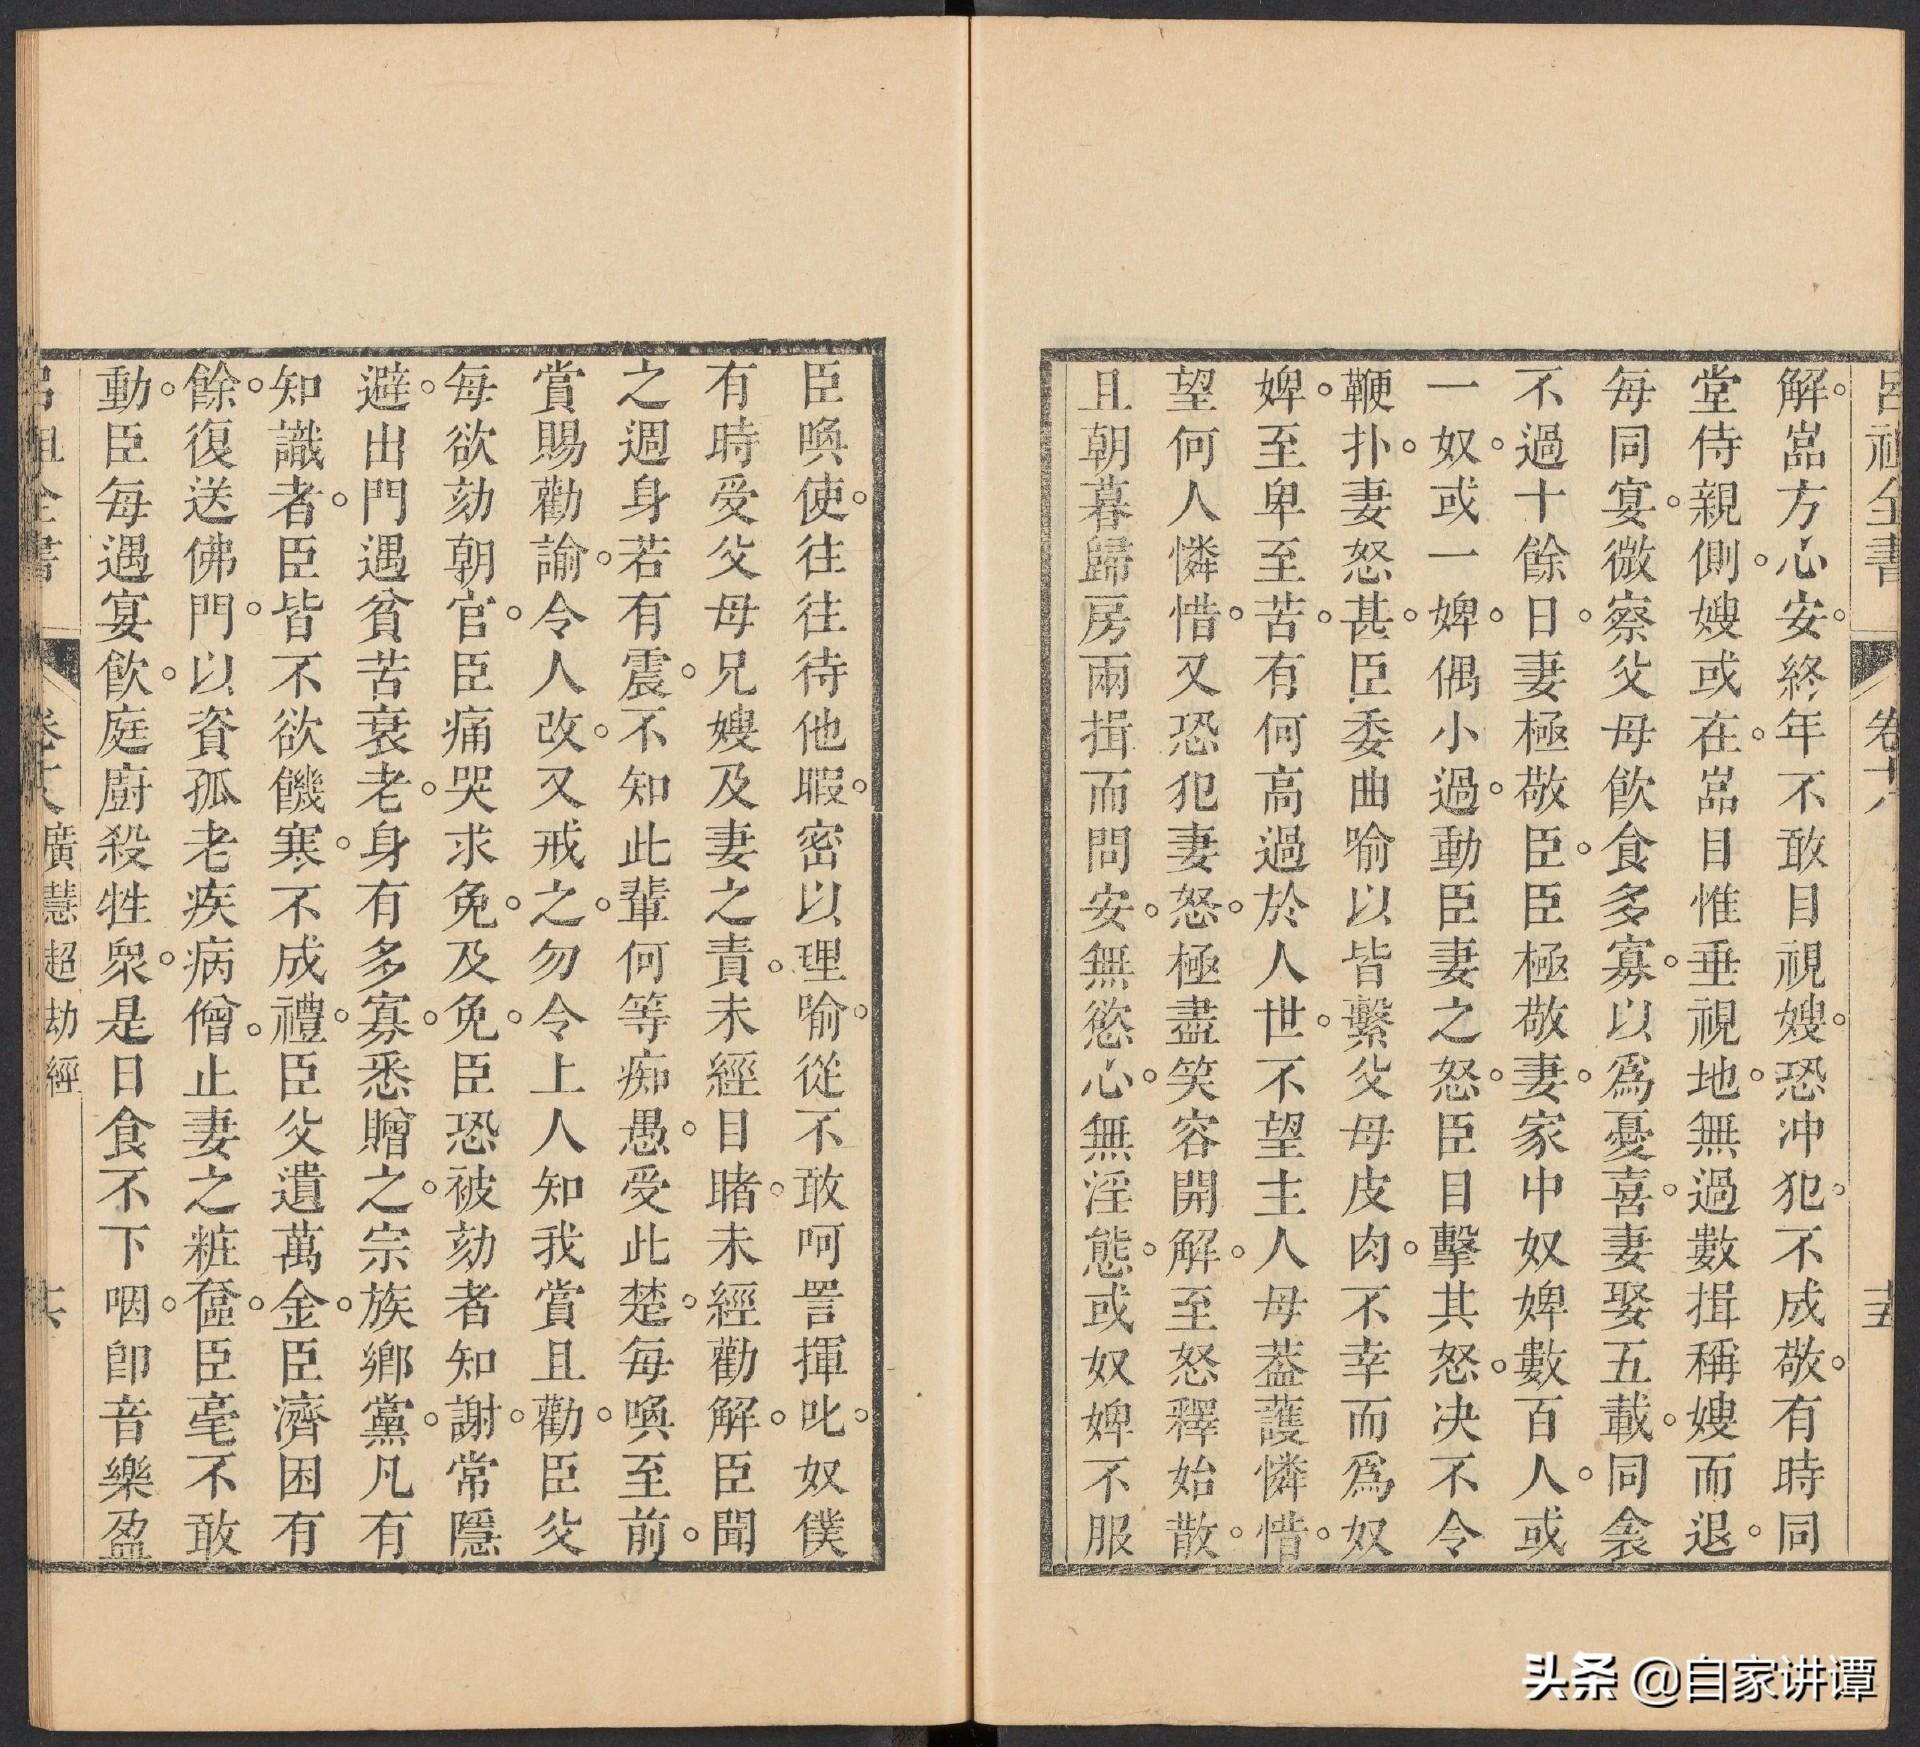 呂祖全書 卷十八 十五
解。嵓方心安。終年不敢目視嫂。恐冲犯。不成敬。有時同
堂侍親側。嫂或在。嵓目惟垂視地。無過數揖稱嫂而退。
每同宴。微察父母飲食多寡。以爲憂喜。妻娶五載。同衾
不過十餘日。妻極敬臣。臣極敬妻。家中奴婢數百人。或
一奴。或一婢。偶小過。動臣妻之怒。臣目擊其怒。决不令
鞭扑。妻怒甚。臣委曲喻以皆繫父母皮肉。不幸而爲奴
婢。至卑至苦。有何高過於人世。不望主人母葢護憐惜。
望何人憐惜。又恐犯妻怒。極盡笑容開解。至怒釋始散。
且朝暮歸房兩揖而問安。無慾心。無淫態。或奴婢不服
臣喚使。往往待他暇。密以理喻。從不敢呵詈揮叱。奴僕
有時受父母兄嫂及妻之責。未經目睹。未經勸解。臣聞
之週身若有震。不知此輩何等痴愚。受此楚。每喚至前。
賞賜勸諭。令人改。又戒之。勿令上人知我賞且勸。臣父
每欲劾朝官。臣痛哭求免。及免。臣恐被劾者知謝。常隱
避。出門遇貧苦衰老。身有多寡。悉贈之。宗族鄉黨。凡有
知識者。臣皆不欲饑寒。不成禮。臣父遺萬金。臣濟困有
餘。復送佛門。以資孤老疾病僧。止妻之粧奩。臣毫不敢
動。臣每遇宴飲。庭廚殺牲衆。是日食不下咽。卽音樂盈
呂祖全書 卷十八 廣慧超劫經 十六
头条 @自家讲谭